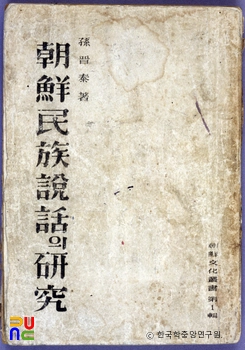 孫晉泰著
朝鮮民族說話의硏究
朝鮮文化叢書第1輯
© 한국학중앙연구원